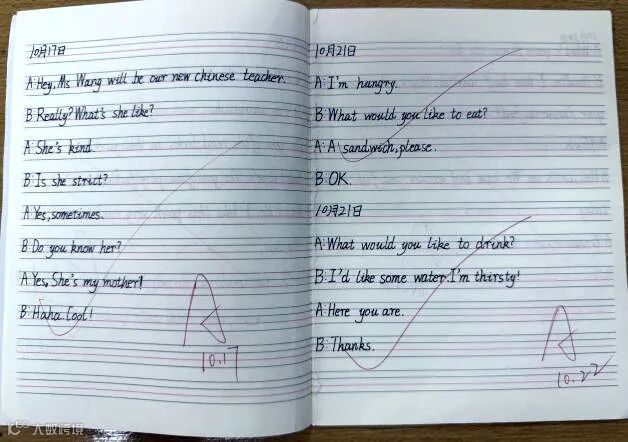 10月17日
A: Hey, Ms Wang will be our new chinese teacher.
B: Really? What's she like?
A: She's kind.
B: Is she strict?
A: Yes, sometimes.
B: Do you know her?
A: Yes, She's my mother!
B: Haha Cool!
A
10.17
10月21日
A: I'm hungry.
B: What would you like to eat?
A: A sandwich, please.
B: OK.
10月21日
A: What would you like to drink?
B: I'd like some water. I'm thirsty!
A: Here you are.
B: Thanks.
A
10.22
大数跨境